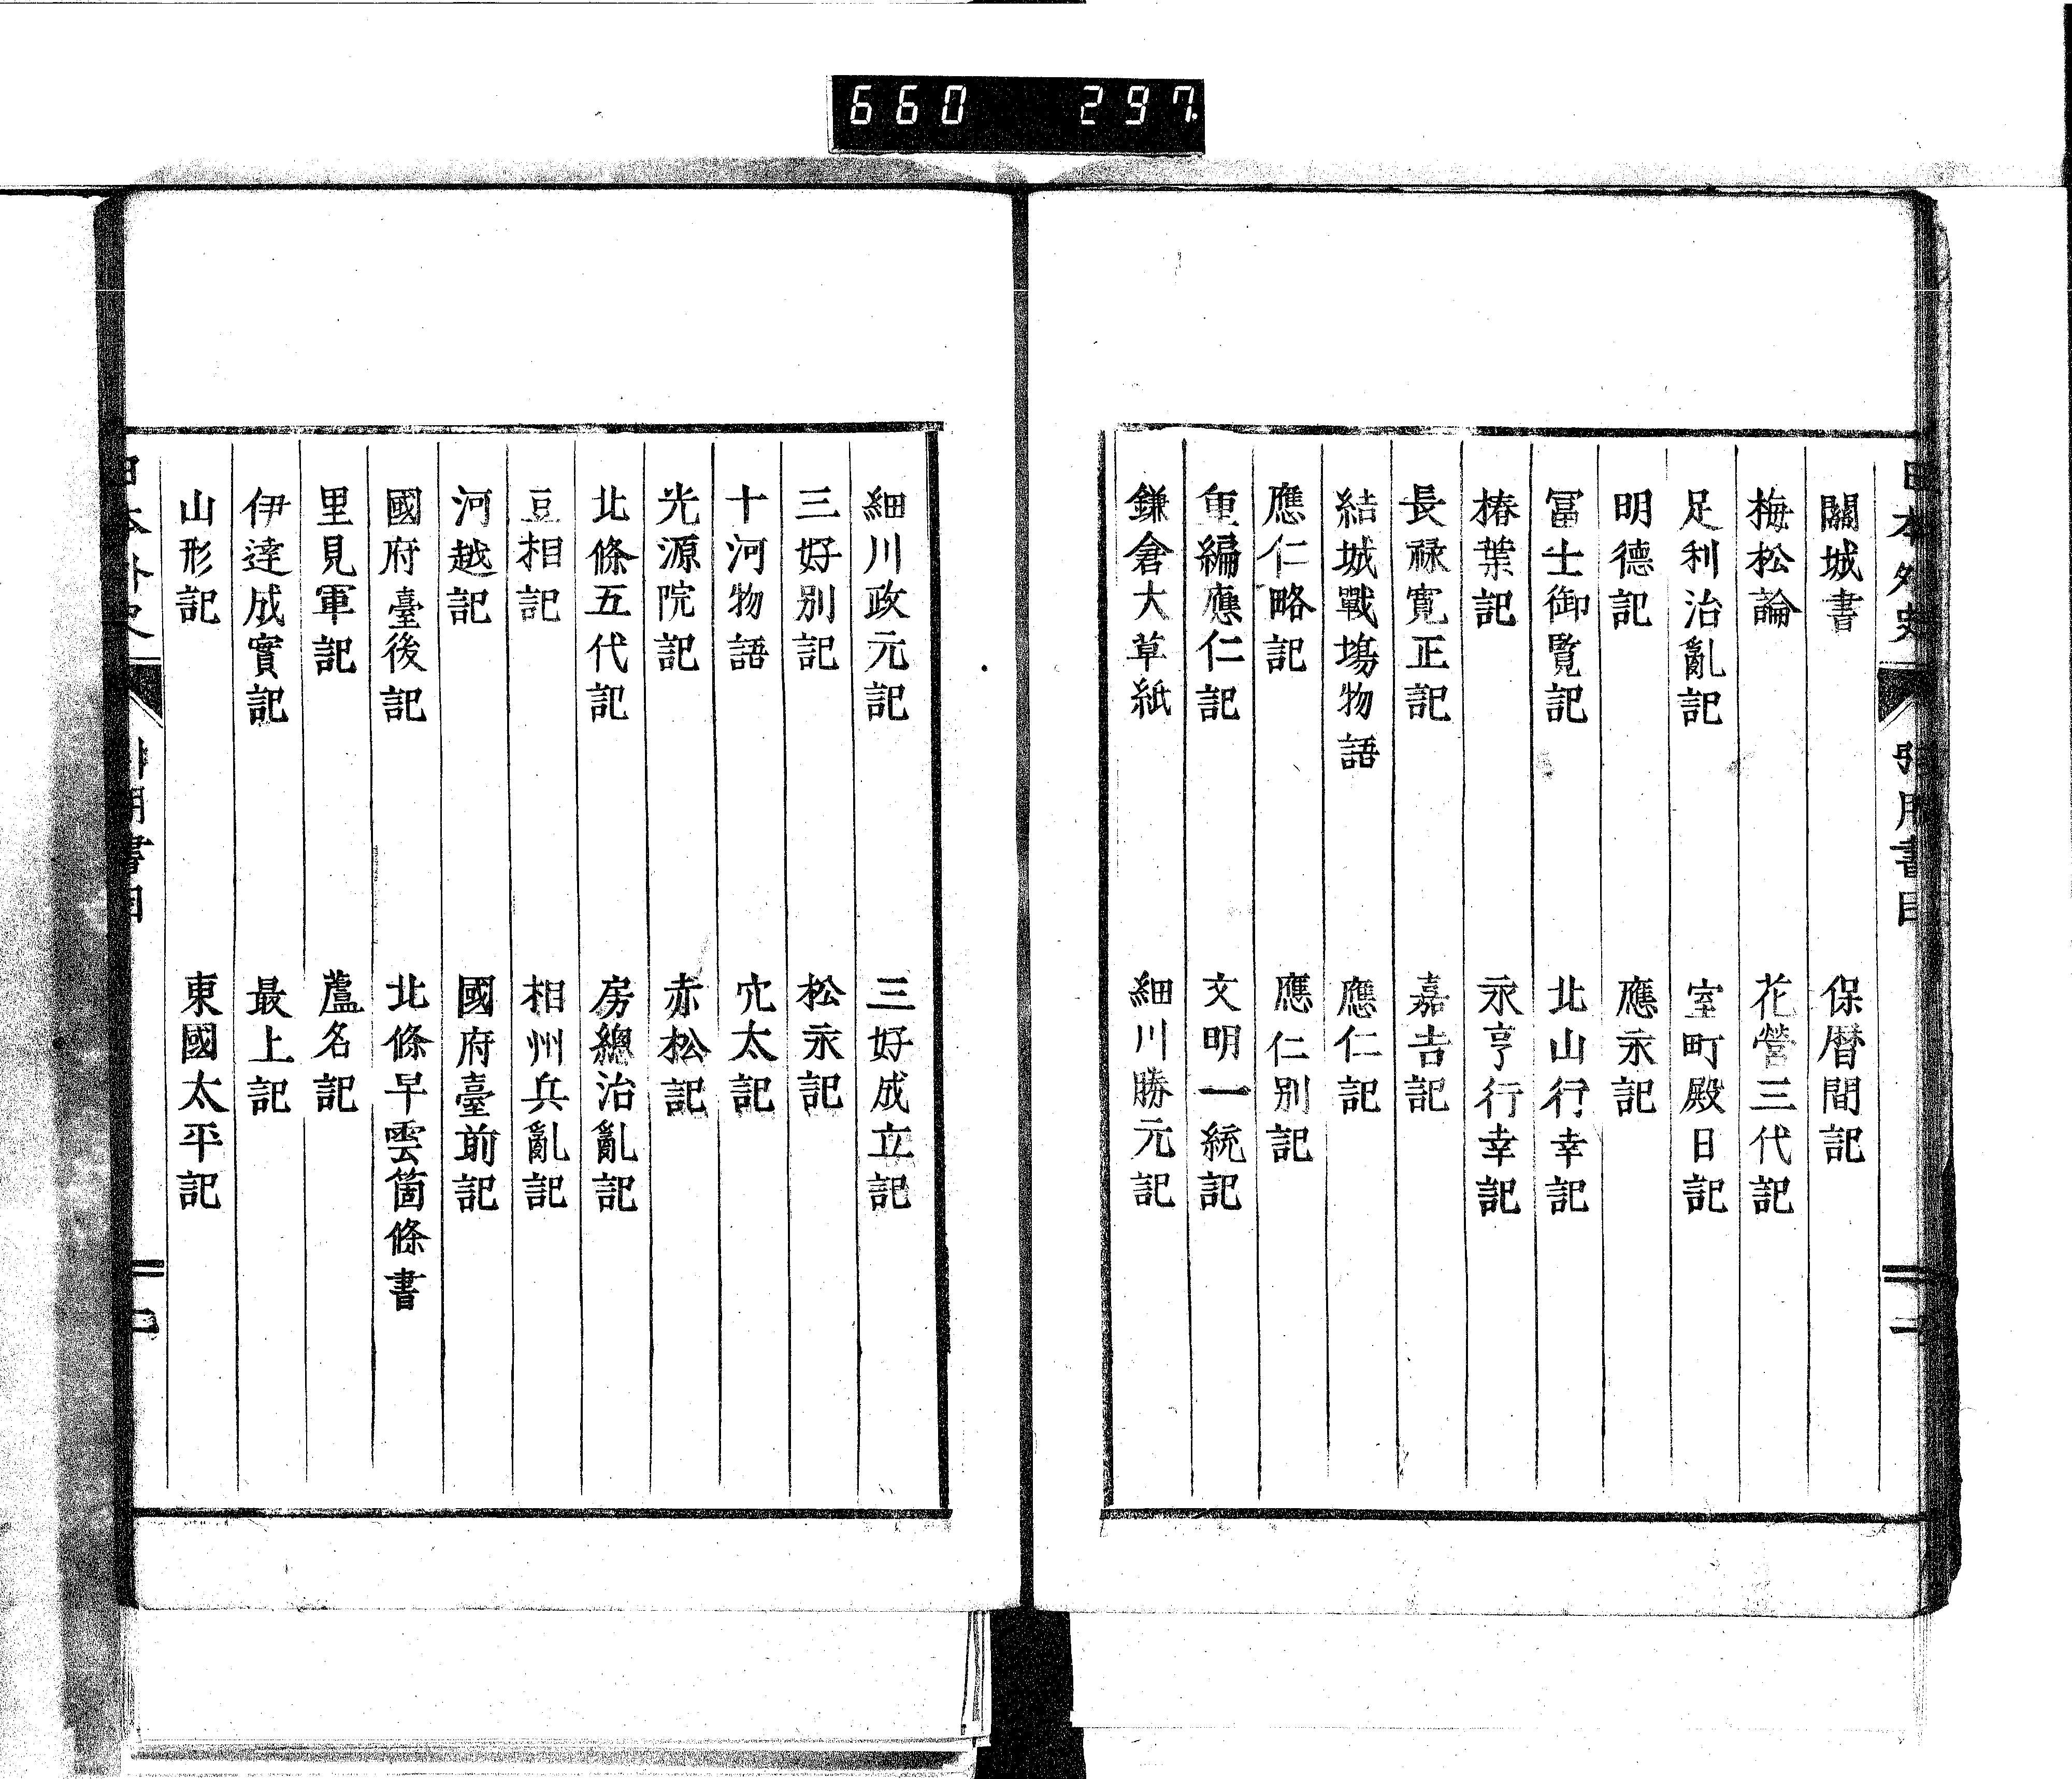 660 297
日本外史 引用書目 二
關城書 保暦間記
梅松論 花營三代記
足利治亂記 室町殿日記
明德記 應永記
冨士御覧記 北山行幸記
椿葉記 永亨行幸記
長禄寛正記 嘉吉記
結城戰場物語 應仁記
應仁略記 應仁別記
重編應仁記 文明一統記
鎌倉大草紙 細川勝元記
細川政元記 三好成立記
三好別記 松永記
十河物語 穴太記
光源院記 赤松記
北條五代記 房總治亂記
豆相記 相州兵亂記
河越記 國府臺前記
國府臺後記 北條早雲箇條書
里見軍記 蘆名記
伊達成實記 最上記
山形記 東國太平記
日本外史 引用書目 二